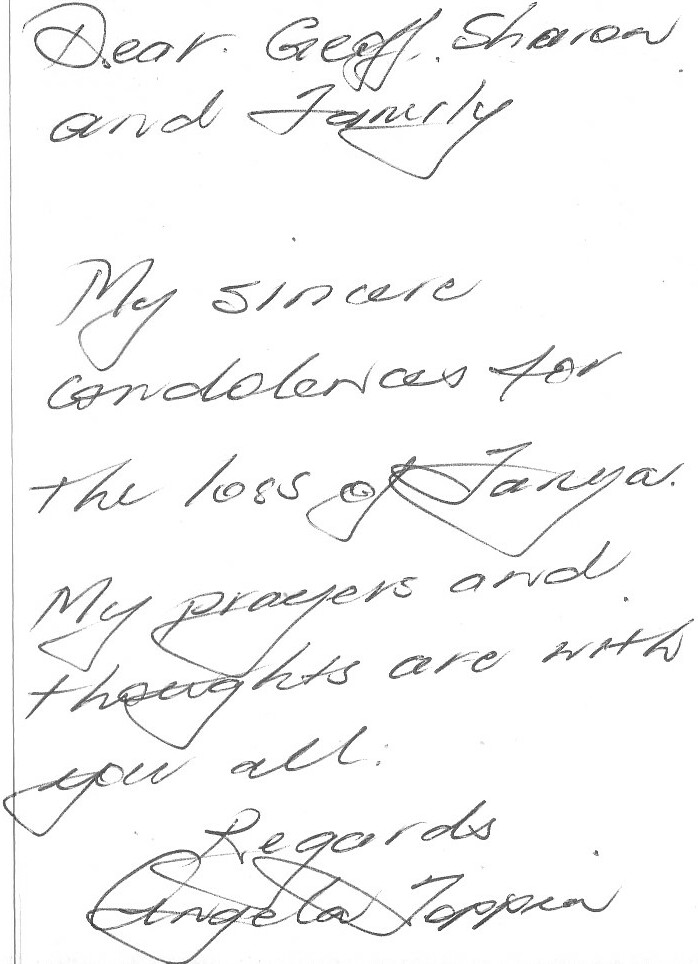 Dear Geoff, Sharon
and Family
My sincere
condolences for
the loss of Tanya.
My prayers and
thoughts are with
you all.
Regards
Angela Toppin